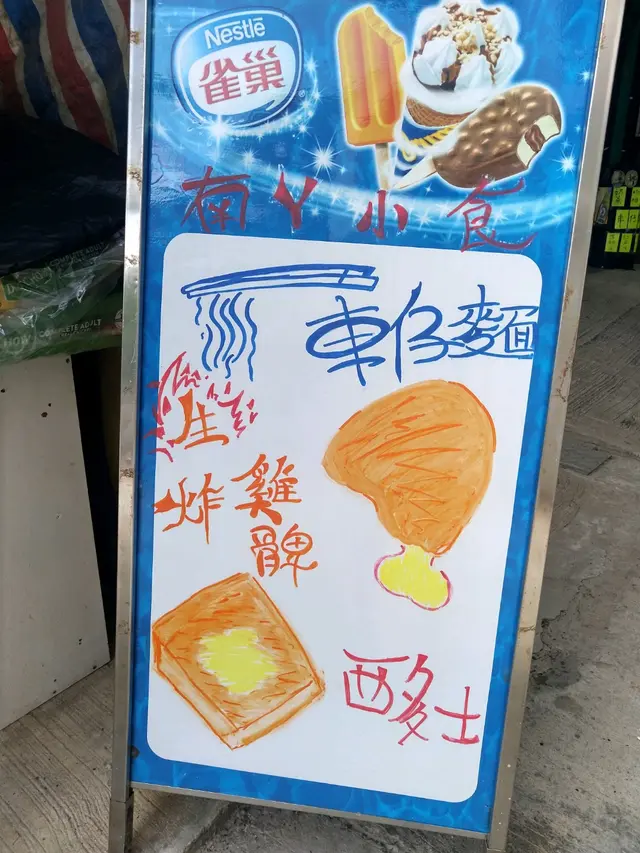 Nestlé
雀巢
南丫小食
車仔麵
生
炸雞
髀
西多士